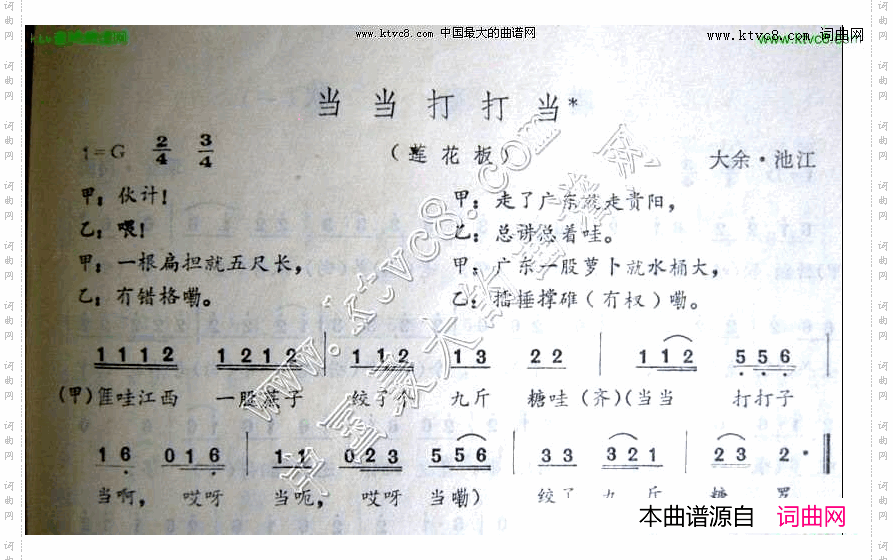 www.ktvc8.com 中国最大的曲谱网
www.ktvc8.com 词曲网
当当打打当*
1=G 2/4 3/4
(莲花板)
大余·池江
甲:伙计!
乙:喂!
甲:一根扁担就五尺长,
乙:冇错格嘞。
甲:走了广东就走贵阳,
乙:总讲总着哇。
甲:广东一股萝卜就水桶大,
乙:擂捶撑碓(冇杈)嘞。
1 1 1 2 1 2 1 2 | 1 1 2 1 3 2 2 | 1 1 2 5 5 6 |
(甲)𠊎哇江西 一股蔗子 绞了个 九斤 糖哇(齐)(当当 打打子
1 6 0 1 6 | 1 1 0 2 3 5 5 6 | 3 3 3 2 1 | 2 3 2 ·
当啊, 哎呀 当呃, 哎呀 当嘞) 绞了 九 斤 糖
本曲谱源自 词曲网